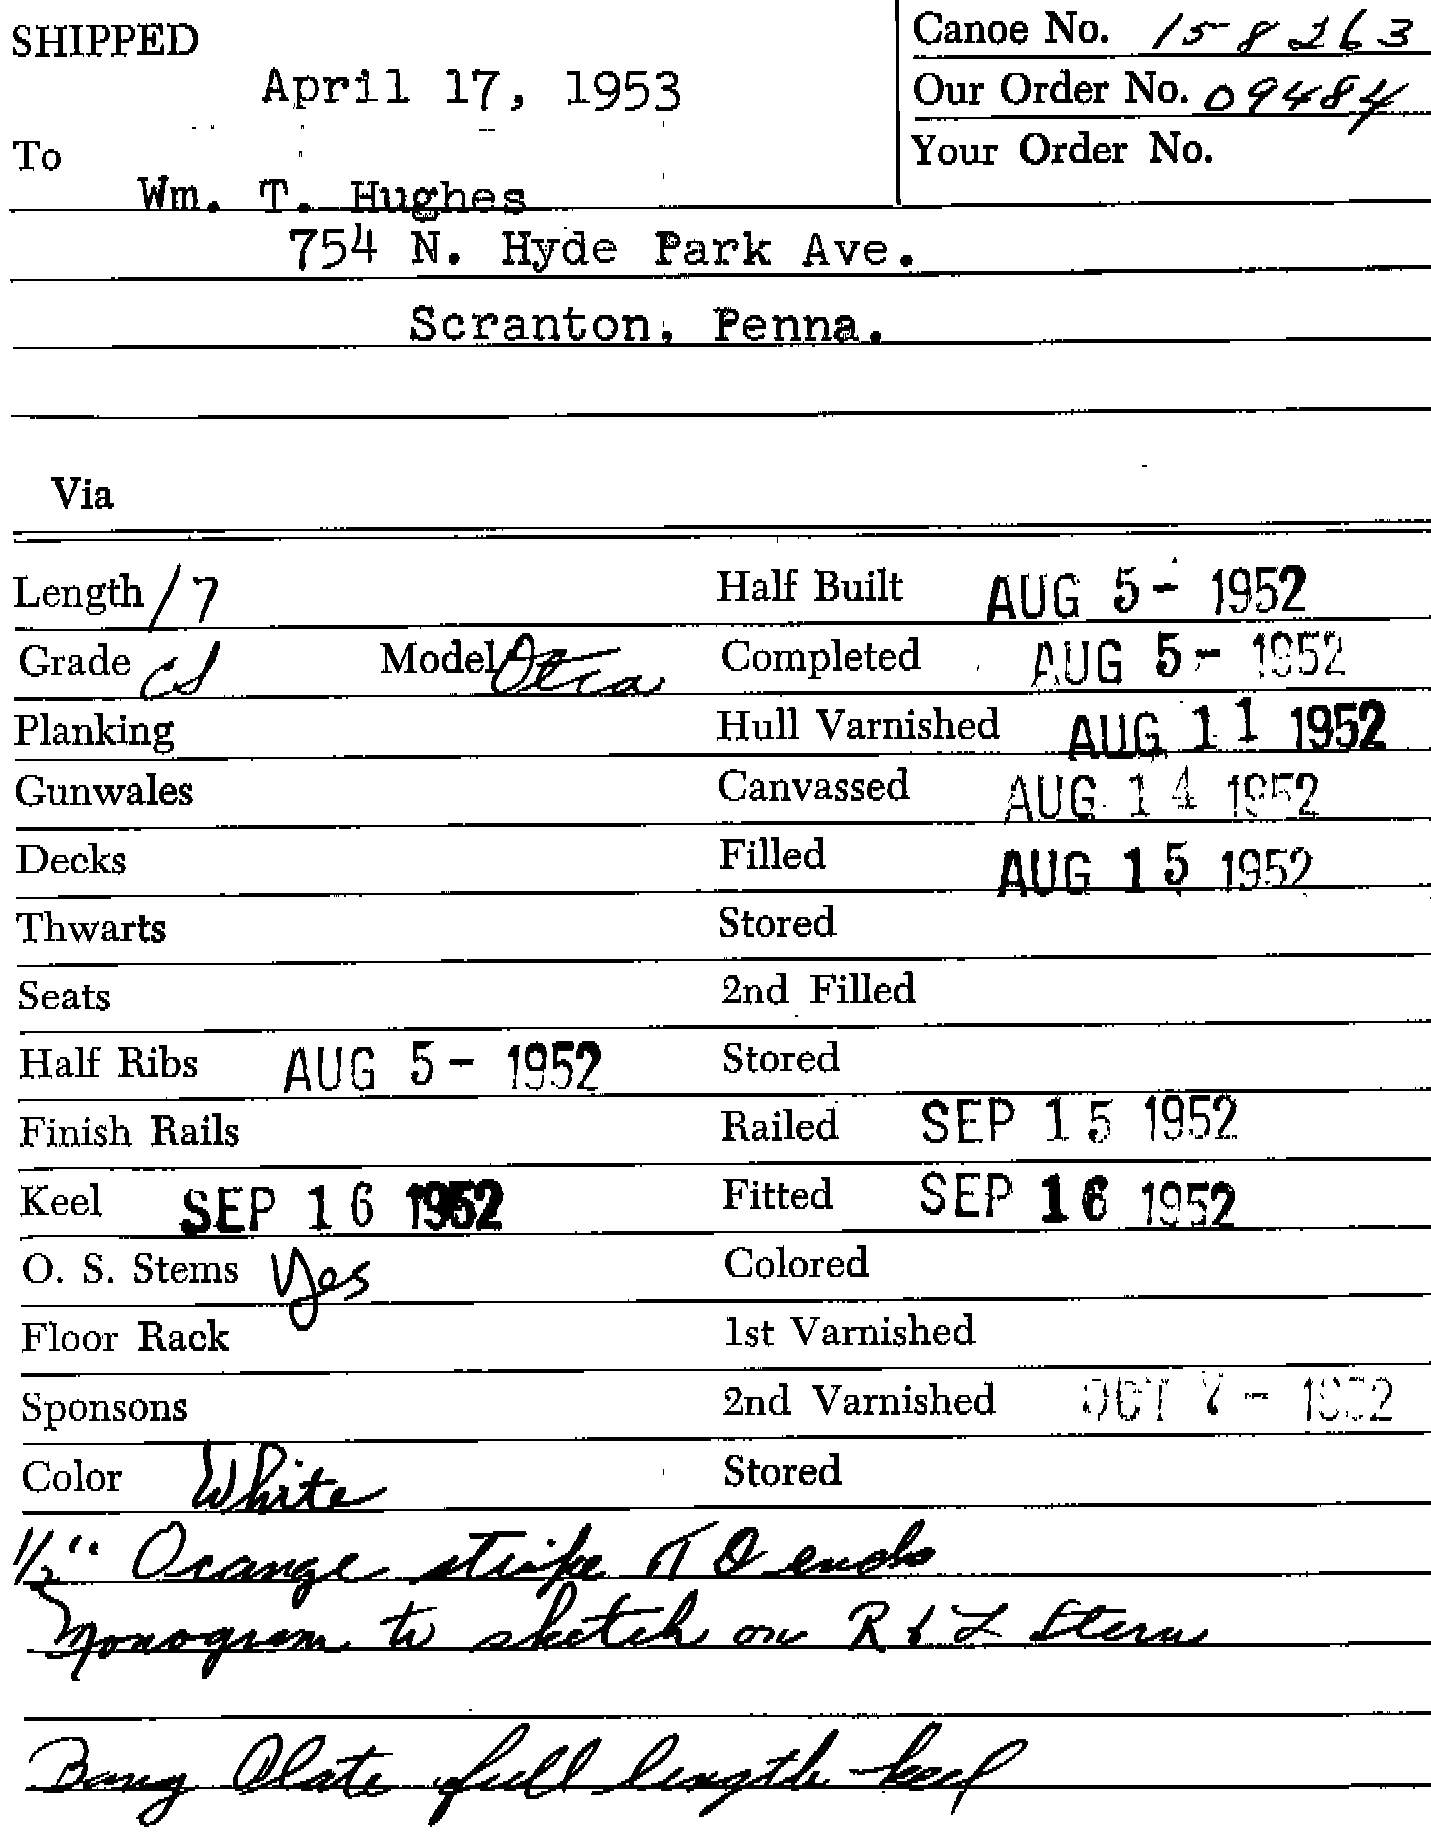 SHIPPED
April 17, 1953
Canoe No. 158263
Our Order No. 09484
Your Order No.
To
Wm. T. Hughes
754 N. Hyde Park Ave.
Scranton, Penna.
Via
Length 17 Half Built AUG 5- 1952
Grade CS Model Otca Completed AUG 5- 1952
Planking Hull Varnished AUG 11 1952
Gunwales Canvassed AUG 14 1952
Decks Filled AUG 15 1952
Thwarts Stored
Seats 2nd Filled
Half Ribs AUG 5- 1952 Stored
Finish Rails Railed SEP 15 1952
Keel SEP 16 1952 Fitted SEP 16 1952
O. S. Stems Yes Colored
Floor Rack 1st Varnished
Sponsons 2nd Varnished OCT 7- 1952
Color White Stored
1/2" Orange stripe TO ends
Monogram to sketch on R & L Stern
Bang Plate full length keel